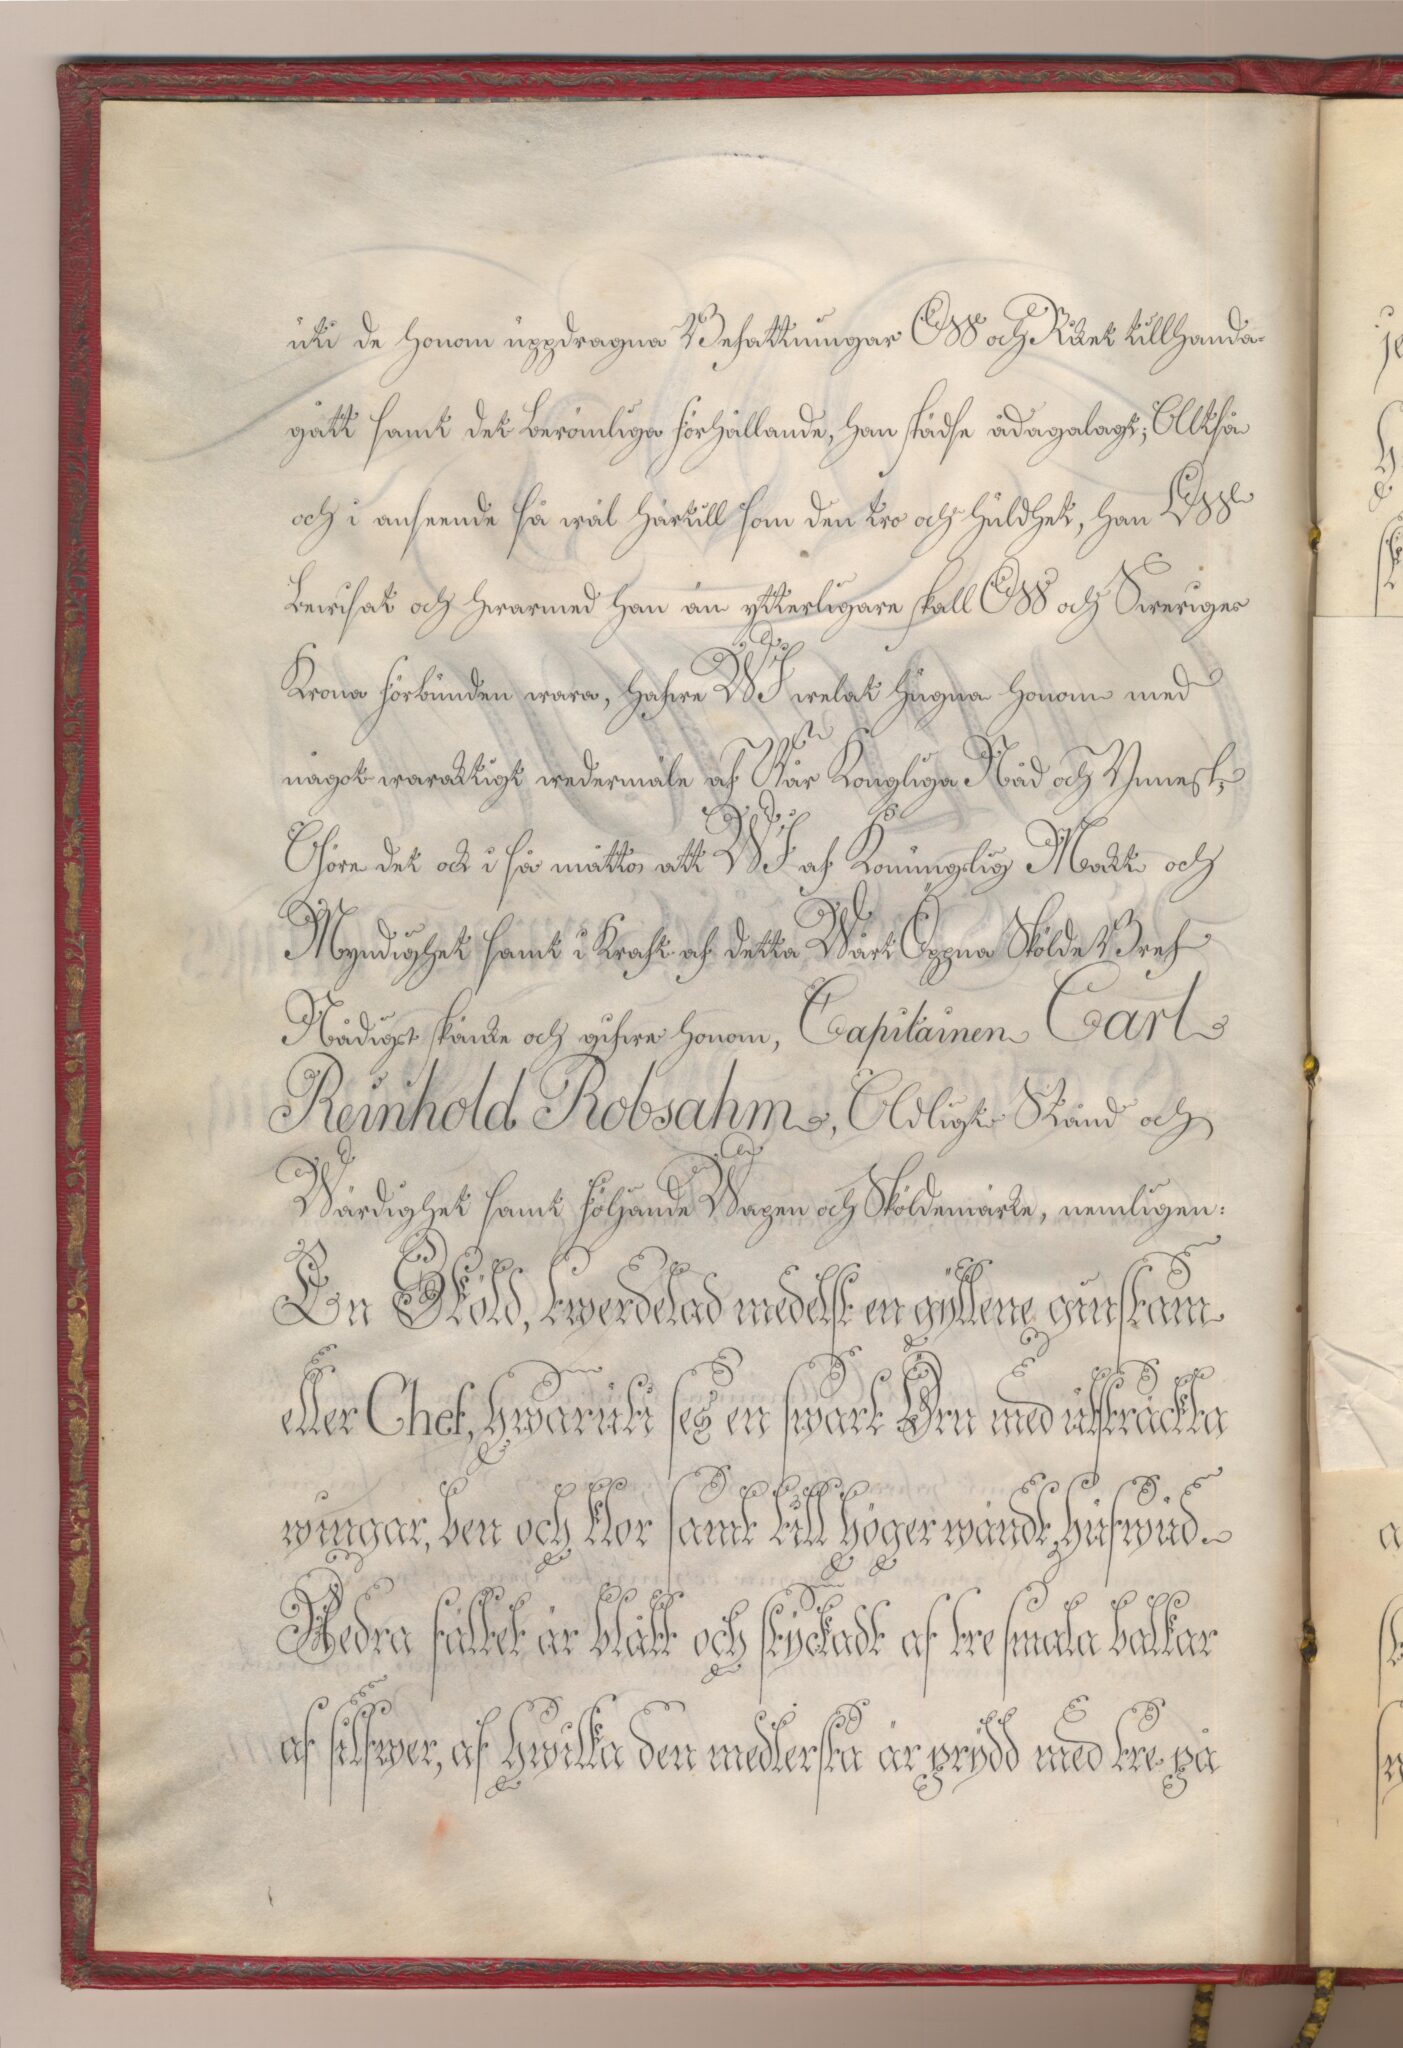 uti de honom uppdragna Befattningar OSS och Riket tillhanda-
gått samt det berömliga förhållande, han städse ådagalagt; Altså
och i anseende så wäl härtill som den tro och huldhet, han OSS
bewisat och hwarmed han än ytterligare skall OSS och Sweriges
Krona förbunden wara, hafwe WJ welat hugna honom med
något waracktigt wedermäle af Wår Kongliga Nåd och Ynnest,
Giöre det ock i så måtto, att WJ af Konungslig Mackt och
Myndighet samt i Kraft af detta Wårt Öppna Sköldebref
Nådigst skänke och gifwe honom, Capitainen Carl
Reinhold Robsahm, Adligt Stånd och
Wärdighet samt följande Wapen och Sköldemärke, nemligen:
En Sköld, twerdelad medelst en gyllene ginstam
eller Chef, hwaruti ses en swart Örn med utsträckta
wingar, ben och klor samt till höger wändt hufwud.
Nedra fältet är blått och styckadt af tre smala balkar
af silfwer, af hwilka den medlersta är prydd med tre på